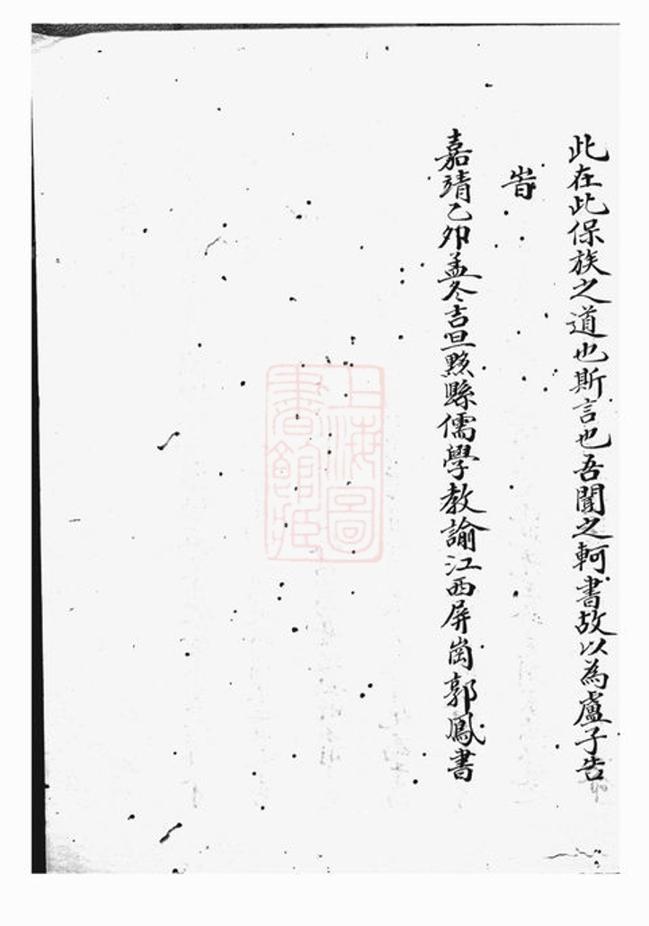 此在此保族之道也斯言也吾聞之軻書故以為盧子告
旹
嘉靖乙卯孟冬吉旦黟縣儒學教諭江西屏崗郭鳳書
上海圖
書館藏